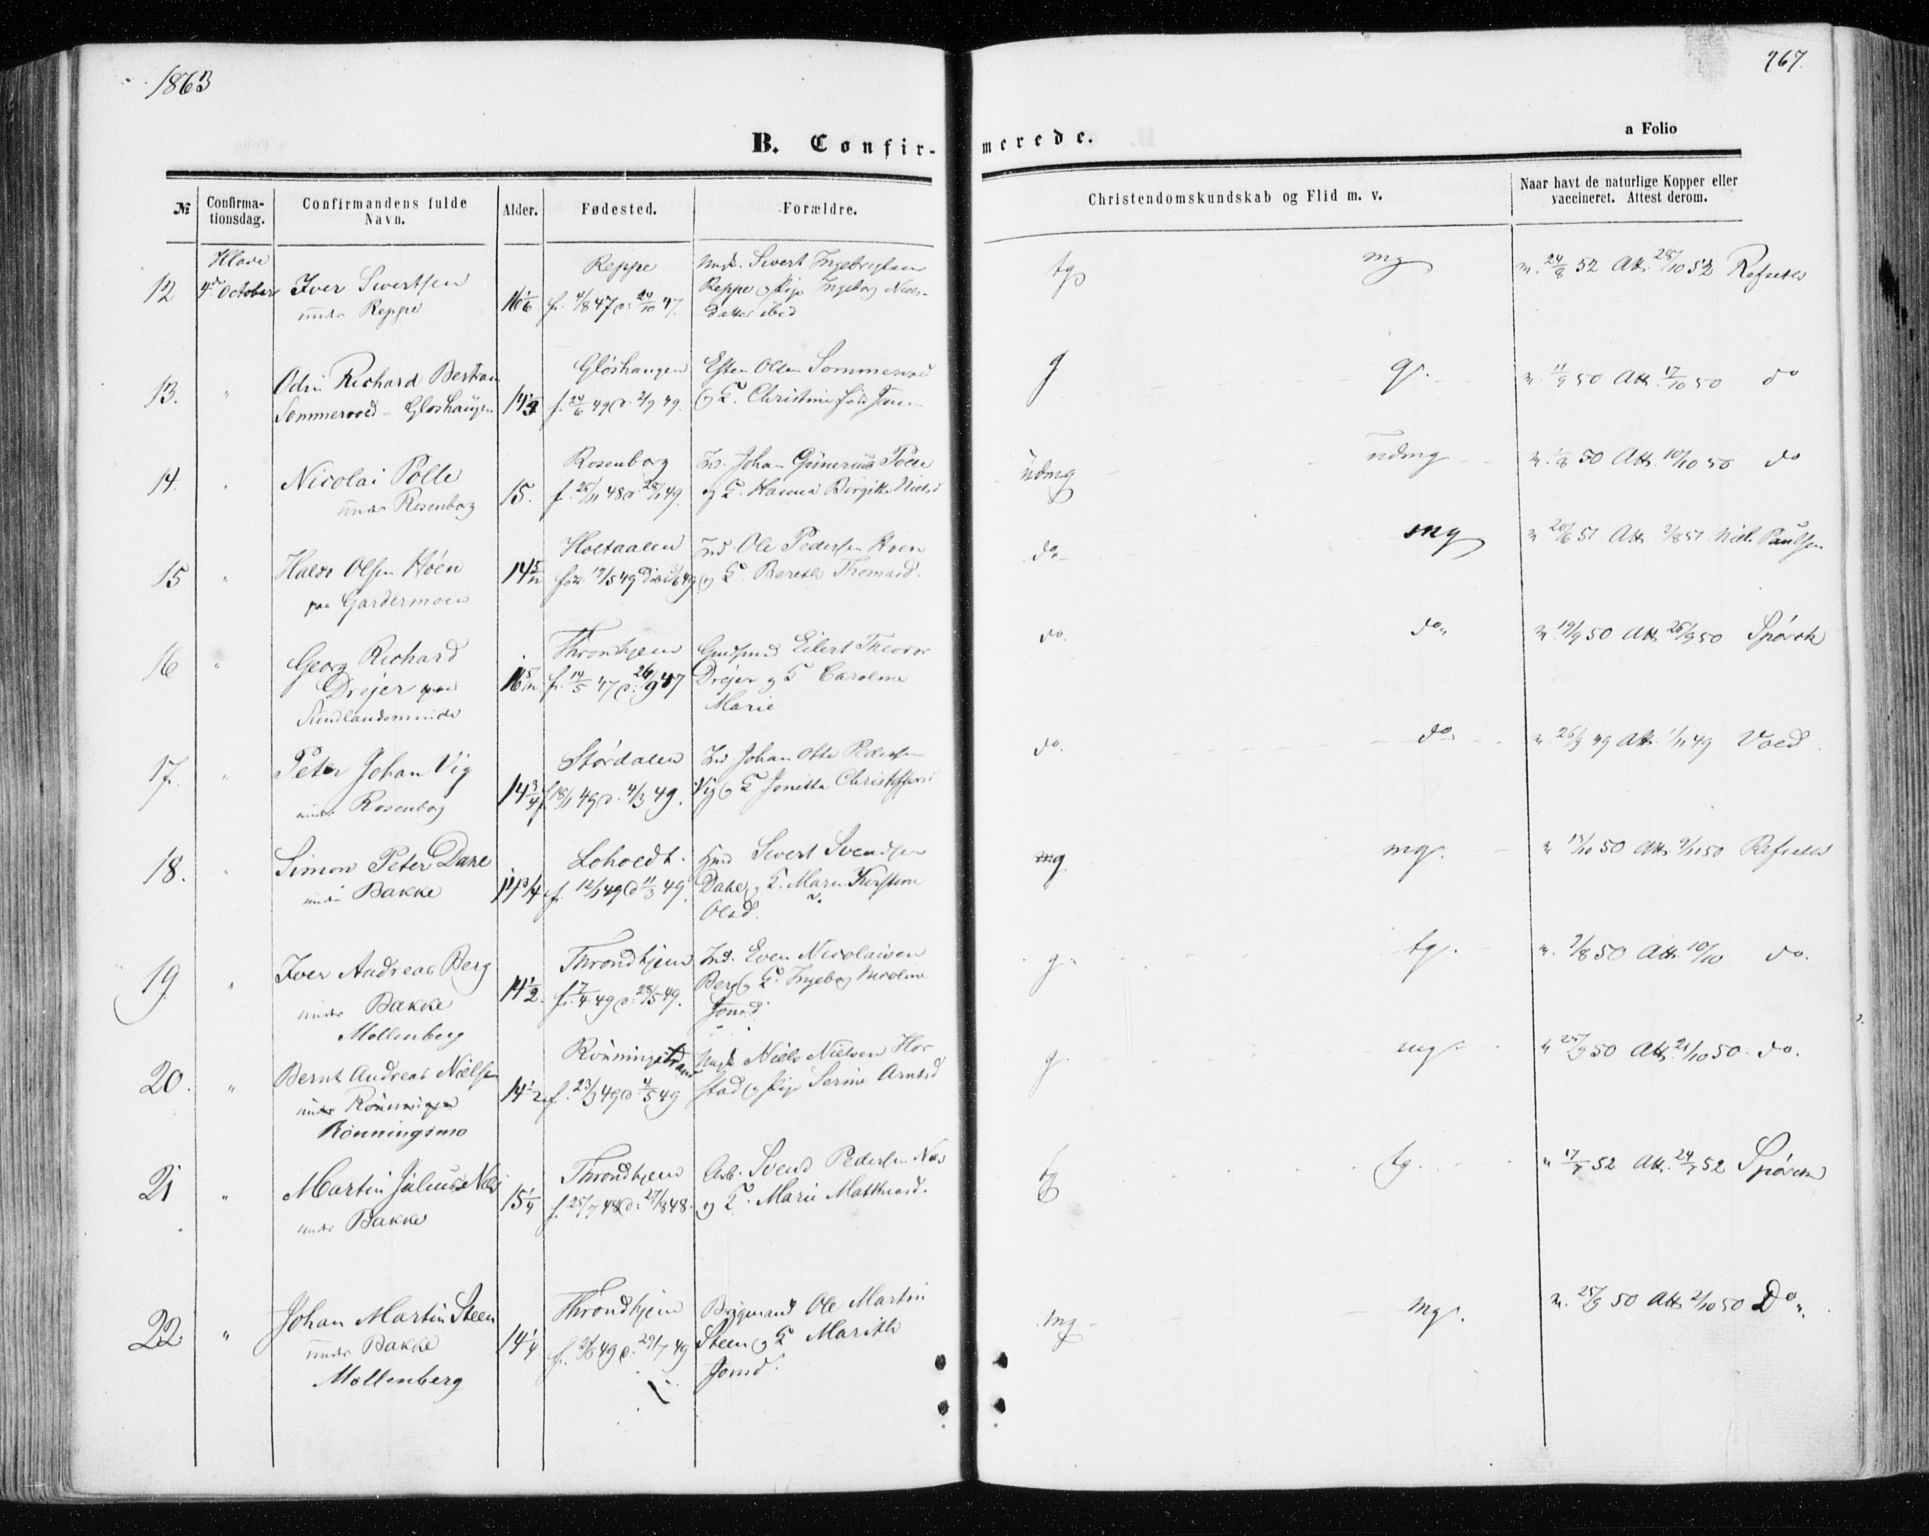 1863
767
B. Confir-
merede.
a Folio
№
Confirma-
tionsdag.
Confirmandens fulde
Navn.
Alder.
Fødested.
Forældre.
Christendomskundskab og Flid m. v.
Naar havt de naturlige Kopper eller
vaccineret. Attest derom.
Hlade
4de October
12
Iver Sivertsen
under Reppe
16 1/6
Reppe
f. 4/8 47 d. 24/10 47.
Ungk. Sivert Ingebrigtsen
Reppe og Pige Ingeborg Niels-
datter ibid
tg
mg
v. 24/8 52 Att. 28/10 52
13.
"
Odin Richard Bertran
Sommervold - Gløshaugen
14 1/3
Gløshaugen
f. 24/6 49 d. 2/9 49.
Esten Olsen Sommervold
og K. Christine
g
g.
v. 11/9 50 Att. 17/10 50 do
14.
"
Nicolai Polle
under Rosenborg
15.
Rosenborg
f. 25/11 48 d. 28/1 49.
Ind. Johan Gunerius Polle
og K. Hanna Birgitte Nielsd
udmg
udmg
v. 1/9 50 Att. 10/10 50 do
15
"
Haldo Olsen Høen
paa Gardermoen
14 5/12
Holtaalen
Ind. Ole Pedersen Hoen
og K. Berethe Thomasd.
do
mg
v. 20/6 51 Att. 2/8 51 Nils Paulsen
16
"
Georg Richard
Drejer paa
Sundlandsminde
16 5/12
Throndhjem
f. 14/5 47 d. 26/9 47
Eilert Theodor
Drejer og K Caroline
Marie
do.
do
v. 19/9 50 Att. 26/9 50 Spørck
17.
"
Peter Johan Vig
under Rosenborg
14 3/4
Størdalen
f. 18/1 49 d. 4/3 49.
Ind. Johan Otto Pedersen
Vig og K Jonetta Christophersd
do.
do
v. 26/9 49 Att. 1/11 49 Vold.
18.
"
Simon Peter Dare
under Bakke
14 3/4
Loholdt
f. 12/1 49 d. 11/3 49.
Sivert Svendsen
Dahl og K. Maren Kirstine
Olsd.
mg
mg.
v 17/10 50 Att. 9/11 50
19
"
Iver Andreas Berg
under Bakke
Mollenberg
14 1/2.
Throndhjem
f. 17/4 49 d. 28/5 49.
Ind. Even Nicolaisen
Berg og K. Ingeborg Nicoline
Jonsd.
g.
tg.
v. 7/8 50 Att. 10/10 do.
20.
"
Bernt Andreas Nielsen
under Rønningen
Rønningsmo
14 1/2
Rönningstrand
f. 23/3 49 d. 4/5 49
Ungk Niels Nielsen Hor
stad og Pige Serine Arntsd
g.
mg.
v 25/9 50 Att. 21/10 50. do.
21
"
Martin Julius Næs
under Bakke
15 1/4
Throndhjem
f. 25/7 48 d. 27/8 48.
Arb. Svend Pedersen Næs
og K. Marie Mathiasd.
tg
tg.
v 17/7 52 Att. 24/7 52 Spörck
22
"
Johan Martin Steen
under Bakke
Mollenberg
14 1/4
Throndhjem
f. 2/6 49 d. 29/7 49
Brygmand Ole Martin
Steen og K Marith
Jonsd.
mg
mg.
v. 25/9 50 Att 2/10 50 Do